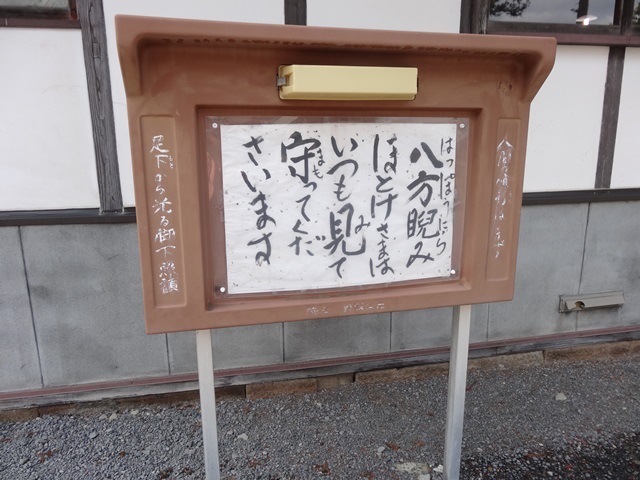 八方睨み
はっぽうにら
ほとけさまは
いつも見て
み
守ってくだ
まも
さいます
足下から光る脚下照顧